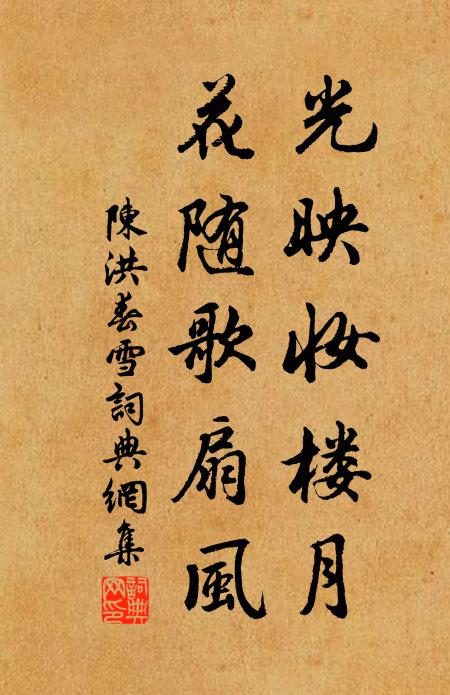 光映妆楼月
花随歌扇风
陳洪春雪詞典網集
詞典
网印